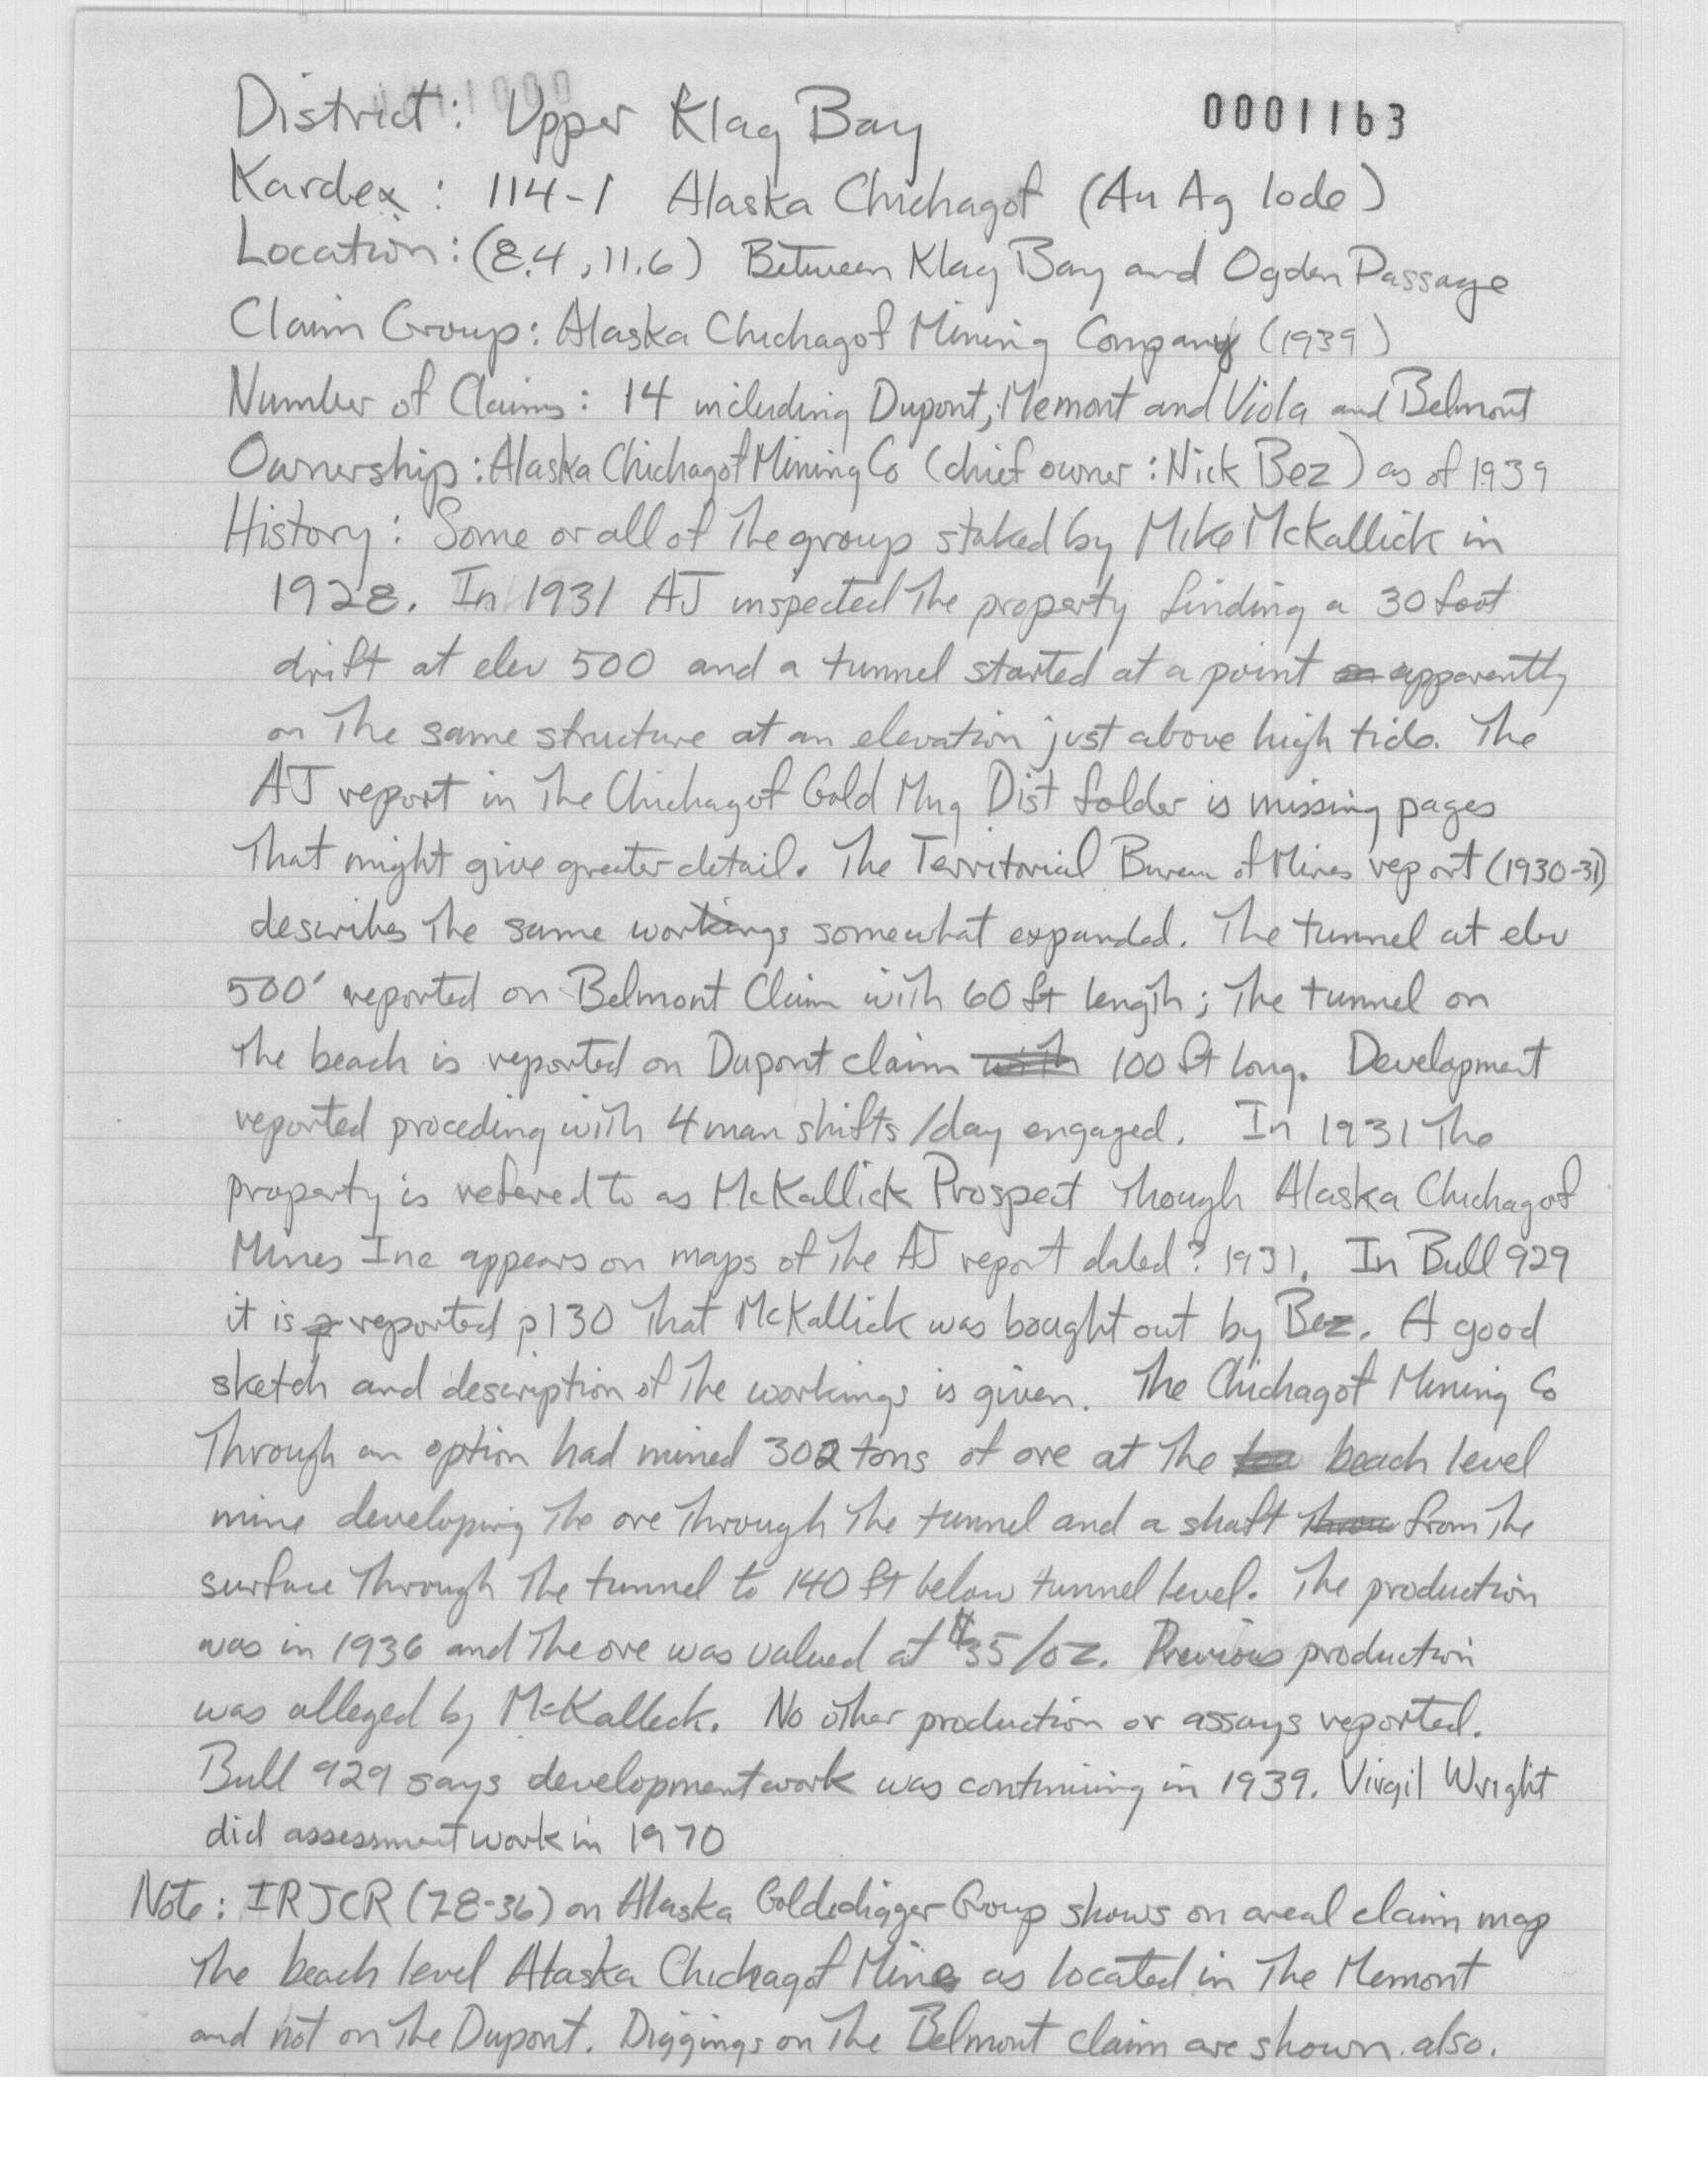 District: Upper Klag Bay 0001163
Kardex: 114-1 Alaska Chichagof (Au Ag lode)
Location: (8.4, 11.6) Between Klag Bay and Ogden Passage
Claim Group: Alaska Chichagof Mining Company (1939)
Number of Claims: 14 including Dupont, Memont and Viola and Belmont
Ownership: Alaska Chichagof Mining Co (chief owner: Nick Bez) as of 1939
History: Some or all of the group staked by Mike McKallick in
1928. In 1931 AJ inspected the property finding a 30 foot
drift at elev 500 and a tunnel started at a point apparently
on the same structure at an elevation just above high tide. The
AJ report in the Chichagof Gold Mng Dist folder is missing pages
that might give greater detail. The Territorial Bureau of Mines report (1930-31)
describes the same workings somewhat expanded. The tunnel at elev
500' reported on Belmont Claim with 60 ft length; the tunnel on
the beach is reported on Dupont claim with 100 ft long. Development
reported proceding with 4 man shifts/day engaged. In 1931 the
property is refered to as McKallick Prospect though Alaska Chichagof
Mines Inc appears on maps of the AJ report dated? 1931. In Bull 929
it is reported p130 that McKallick was bought out by Bez. A good
sketch and description of the workings is given. The Chichagof Mining Co
through an option had mined 302 tons of ore at the beach level
mine developing the ore through the tunnel and a shaft from the
surface through the tunnel to 140 ft below tunnel level. The production
was in 1936 and the ore was valued at $35/oz. Previous production
was alleged by McKalleck. No other production or assays reported.
Bull 929 says development work was continuing in 1939. Virgil Wright
did assessment work in 1970
Note: IR JCR (78-36) on Alaska Goldedigger Group shows on areal claim map
the beach level Alaska Chichagof Mine as located in the Memont
and not on the Dupont. Diggings on the Belmont claim are shown also.